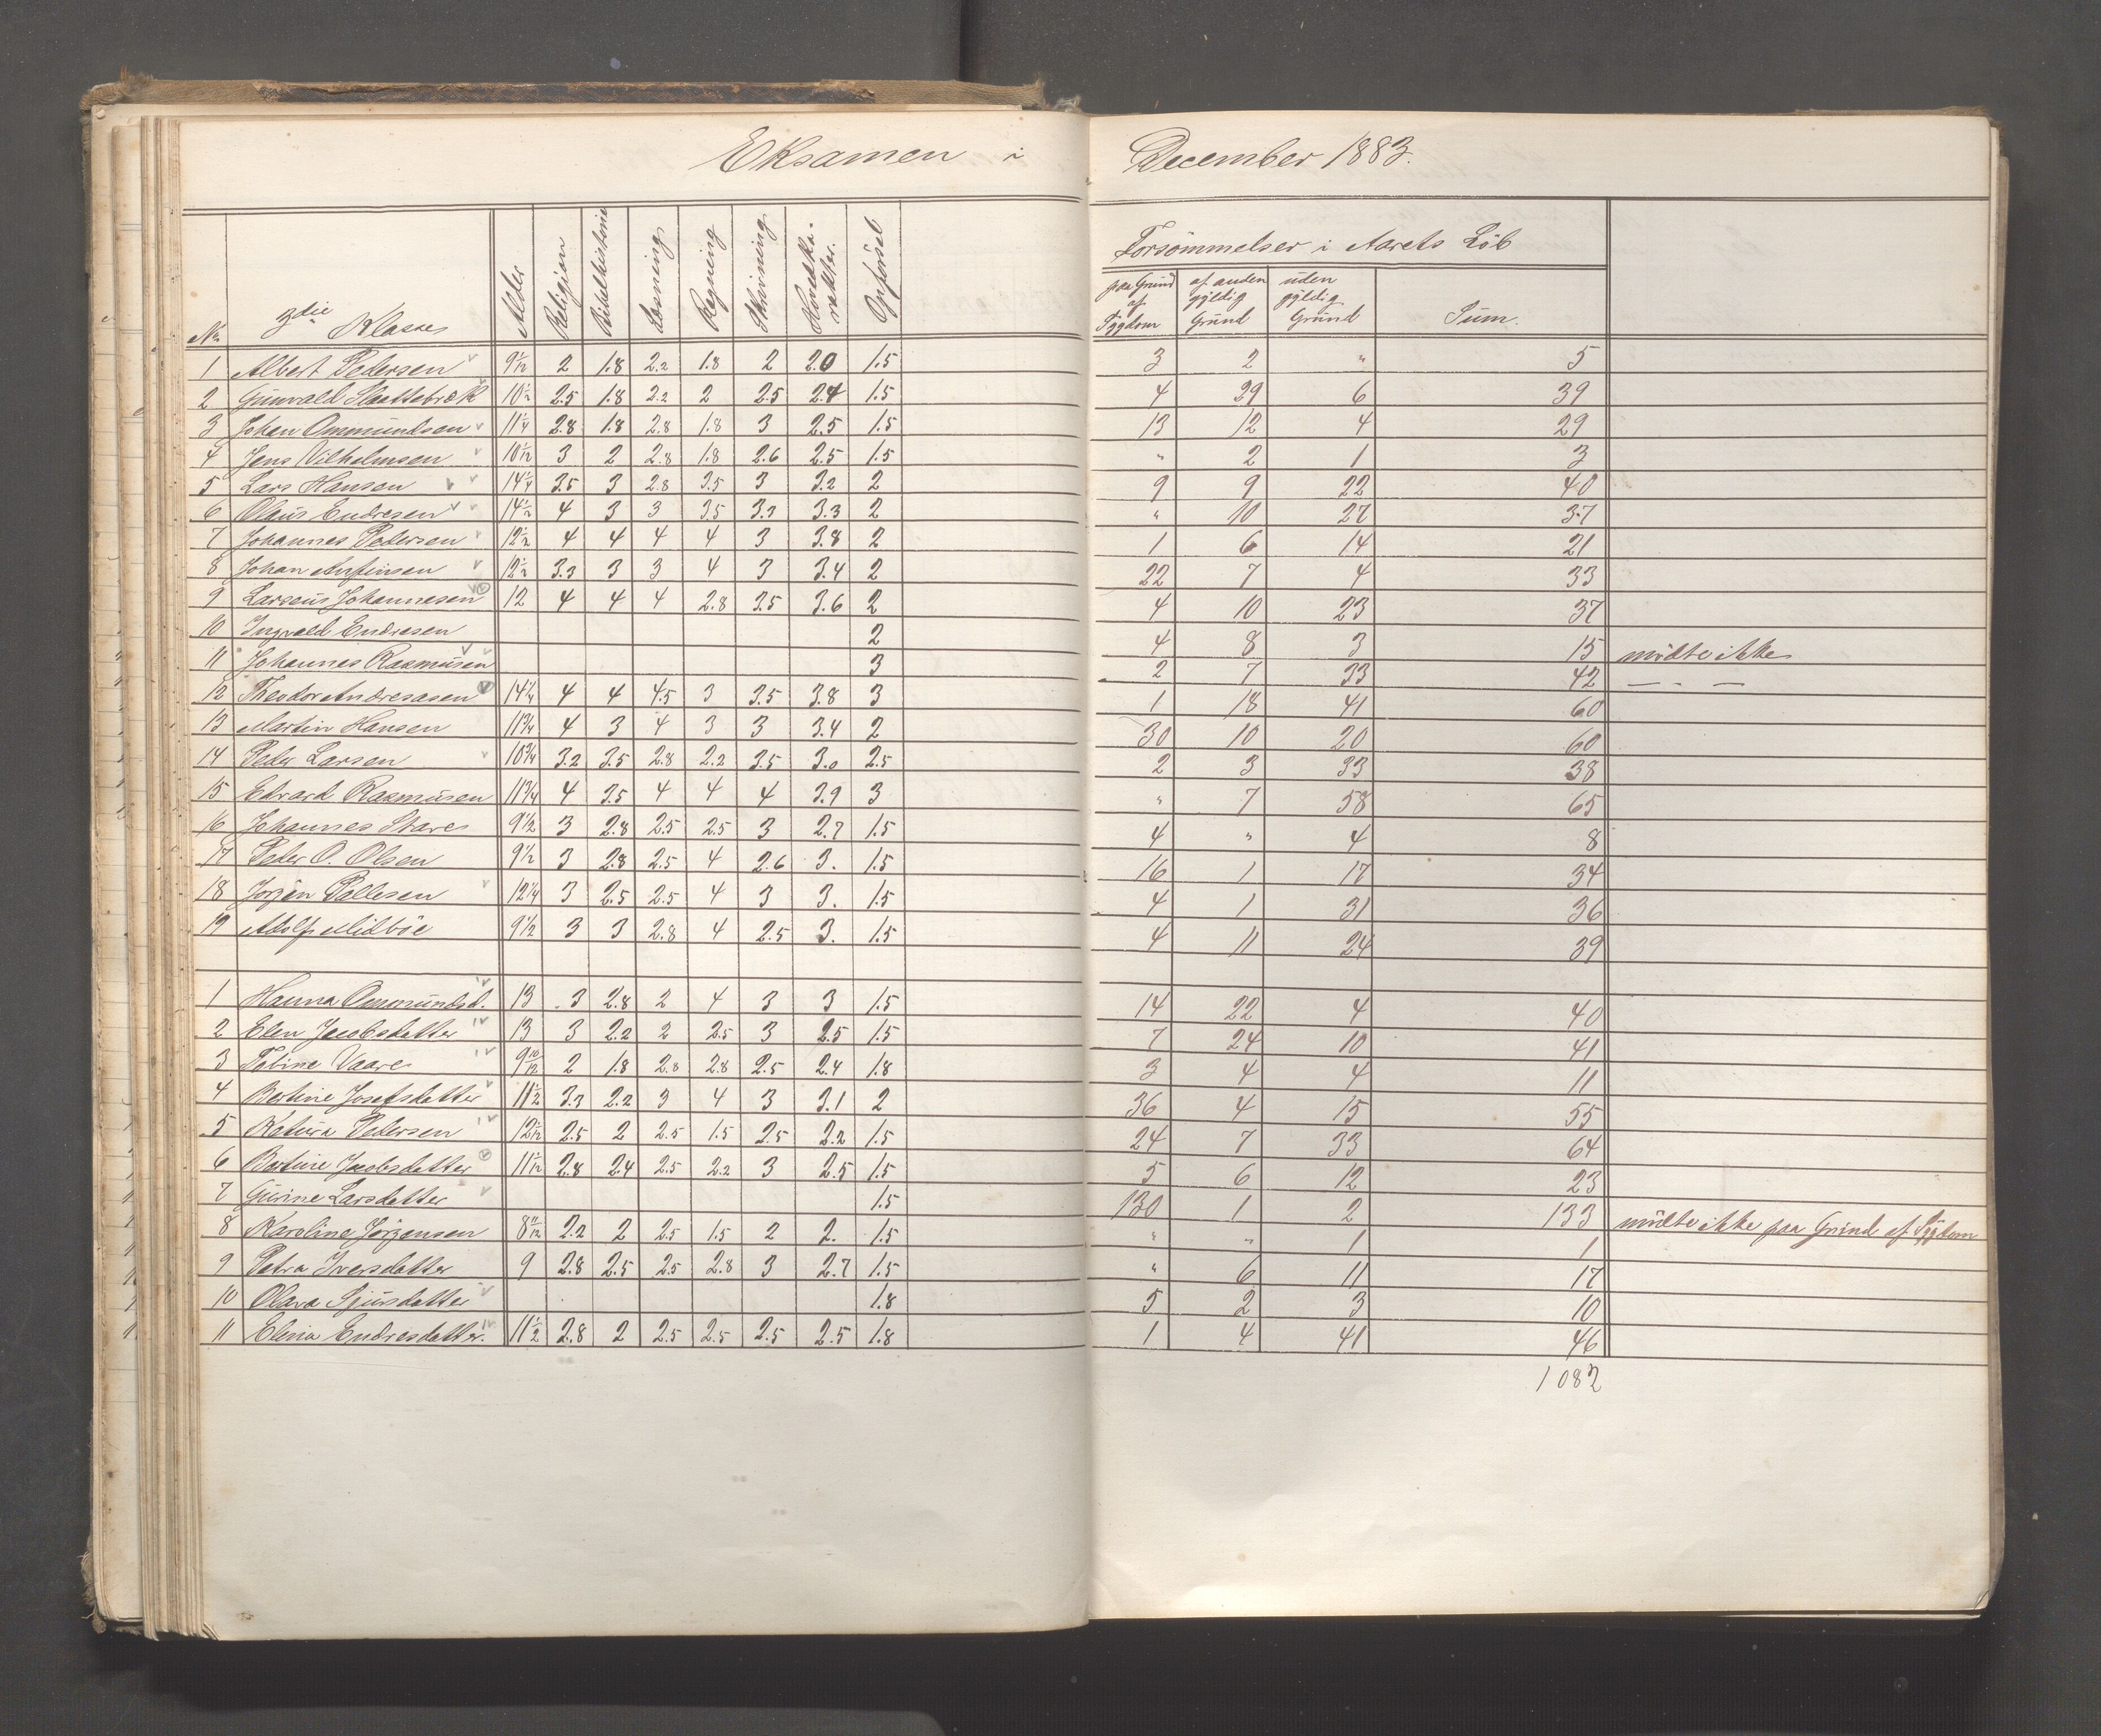 Eksamen i December 1883.
Forsömmelser i Aarets Löb
No. 3die Klasse Alder Religion Bibelhistorie Læsning Regning Skrivning Hovedka-rakter. Opförsel paa Grund af Sygdom af anden gyldig Grund uden gyldig Grund Sum.
1 Albert Pedersen 9 1/12 2 1.8 2.2 1.8 2 2.0 1.5 3 2 " 5
2 Gunvald Slaattebræk 10 1/2 2.5 1.8 2.2 2 2.5 2.4 1.5 4 29 6 39
3 Johan Ommundsen 11 1/4 2.8 1.8 2.8 1.8 3 2.5 1.5 13 12 4 29
4 Jens Vilhelmsen 10 1/12 3 2 2.8 1.8 2.6 2.5 1.5 " 2 1 3
5 Lars Hansen 14 1/4 3.5 3 2.8 3.5 3 3.2 2 9 9 22 40
6 Olaus Endresen 14 1/2 4 3 3 3.5 3.3 3.3 2 " 10 27 37
7 Johannes Pedersen 12 1/2 4 4 4 4 3 3.8 2 1 6 14 21
8 Johan 12 1/2 3.3 3 3 4 3 3.4 2 22 7 4 33
9 Larseus Johannesen 12 4 4 4 2.8 3.5 3.6 2 4 10 23 37
10 Ingvald Endresen 2 4 8 3 15 mödte ikke
11 Johannes Rasmusen 3 2 7 33 42 — . —
12 Theodor Andreasen 14 1/4 4 4 4.5 3 3.5 3.8 3 1 18 41 60
13 Martin Hansen 11 3/4 4 3 4 3 3 3.4 2 30 10 20 60
14 Peder Larsen 10 3/4 3.2 3.5 2.8 2.2 3.5 3.0 2.5 2 3 33 38
15 Edvard Rasmusen 11 3/4 4 3.5 4 4 4 3.9 3 " 7 58 65
16 Johannes Stave 9 1/2 3 2.8 2.5 2.5 3 2.7 1.5 4 " 4 8
17 Peder O. Olsen 9 1/2 3 2.8 2.5 4 2.6 3. 1.5 16 1 17 34
18 Jörgen Pallesen 12 1/4 3 2.5 2.5 4 3 3. 1.5 4 1 31 36
19 Adolf Midböe 9 1/2 3 3 2.8 4 2.5 3. 1.5 4 11 24 39
1 Hanna Ommundsd. 13 3 2.8 2 4 3 3 1.5 14 22 4 40
2 Elen Jacobsdatter 13 3 2.2 2 2.5 3 2.5 1.5 7 24 10 41
3 Tobine Vaare 9 10/12 2 1.8 2.8 2.8 2.5 2.4 1.8 3 4 4 11
4 Bertine Josefsdatter 11 1/2 3.3 2.2 3 4 3 3.1 2 36 4 15 55
5 Katura Pedersen 12 1/12 2.5 2 2.5 1.5 2.5 2.2 1.5 24 7 33 64
6 Bertine Jacobsdatter 11 1/12 2.8 2.4 2.5 2.2 3 2.5 1.5 5 6 12 23
7 Gurine Larsdatter 1.5 130 1 2 133 mödte ikke paa Grund af Sygdom
8 Karoline Jörgensen 8 11/12 2.2 2 2.5 1.5 2 2. 1.5 " " 1 1
9 Petra Iversdatter 9 2.8 2.5 2.5 2.8 3 2.7 1.5 " 6 11 17
10 Olava Sjursdatter 1.8 5 2 3 10
11 Elena Endresdatter. 11 1/2 2.8 2 2.5 2.5 2.5 2.5 1.8 1 4 41 46
1082